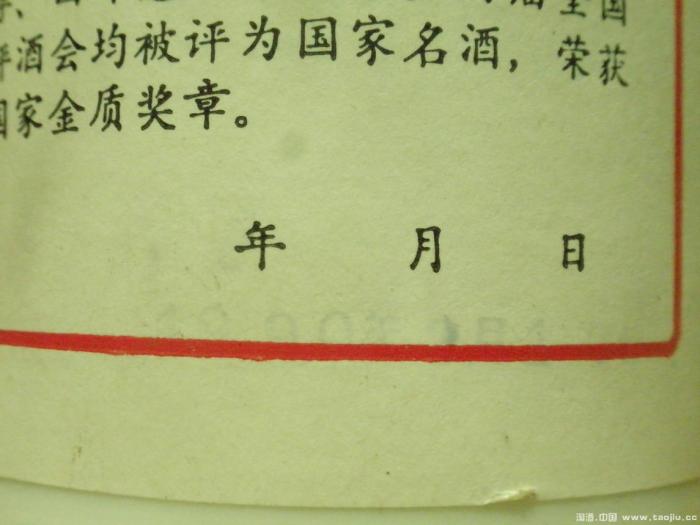 届全国
评酒会均被评为国家名酒，荣获
国家金质奖章。
年 月 日
淘酒.中国 www.taojiu.cc